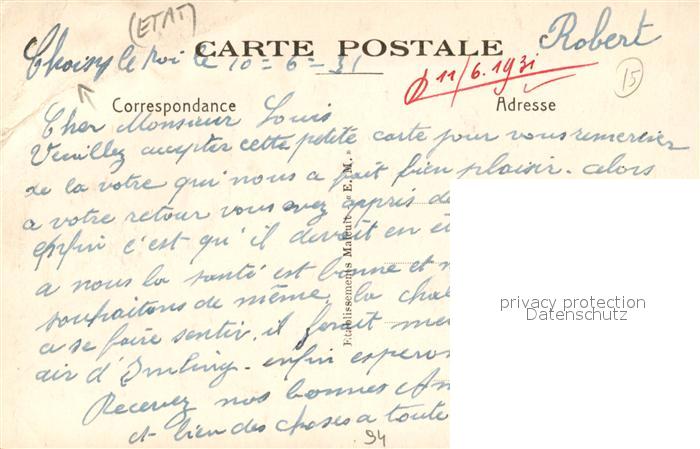 (ETAT)
Choisy le Roi le 10=6=31
CARTE POSTALE
Robert
11/6.1931
15
Correspondance
Adresse
Cher Monsieur Louis
Veuillez accepter cette petite carte pour vous remercier
de la votre qui nous a fait bien plaisir. alors
a votre retour vous avez appris de
enfin c'est qu'il devait en êt
a nous la santé est bonne et
souhaitons de même. la chal
a se faire sentir. il ferait
air d' enfin esperon
Recevez nos bonnes Am
et bien des choses a toute
94
Etablissements Malcuit "E.M."
privacy protection
Datenschutz